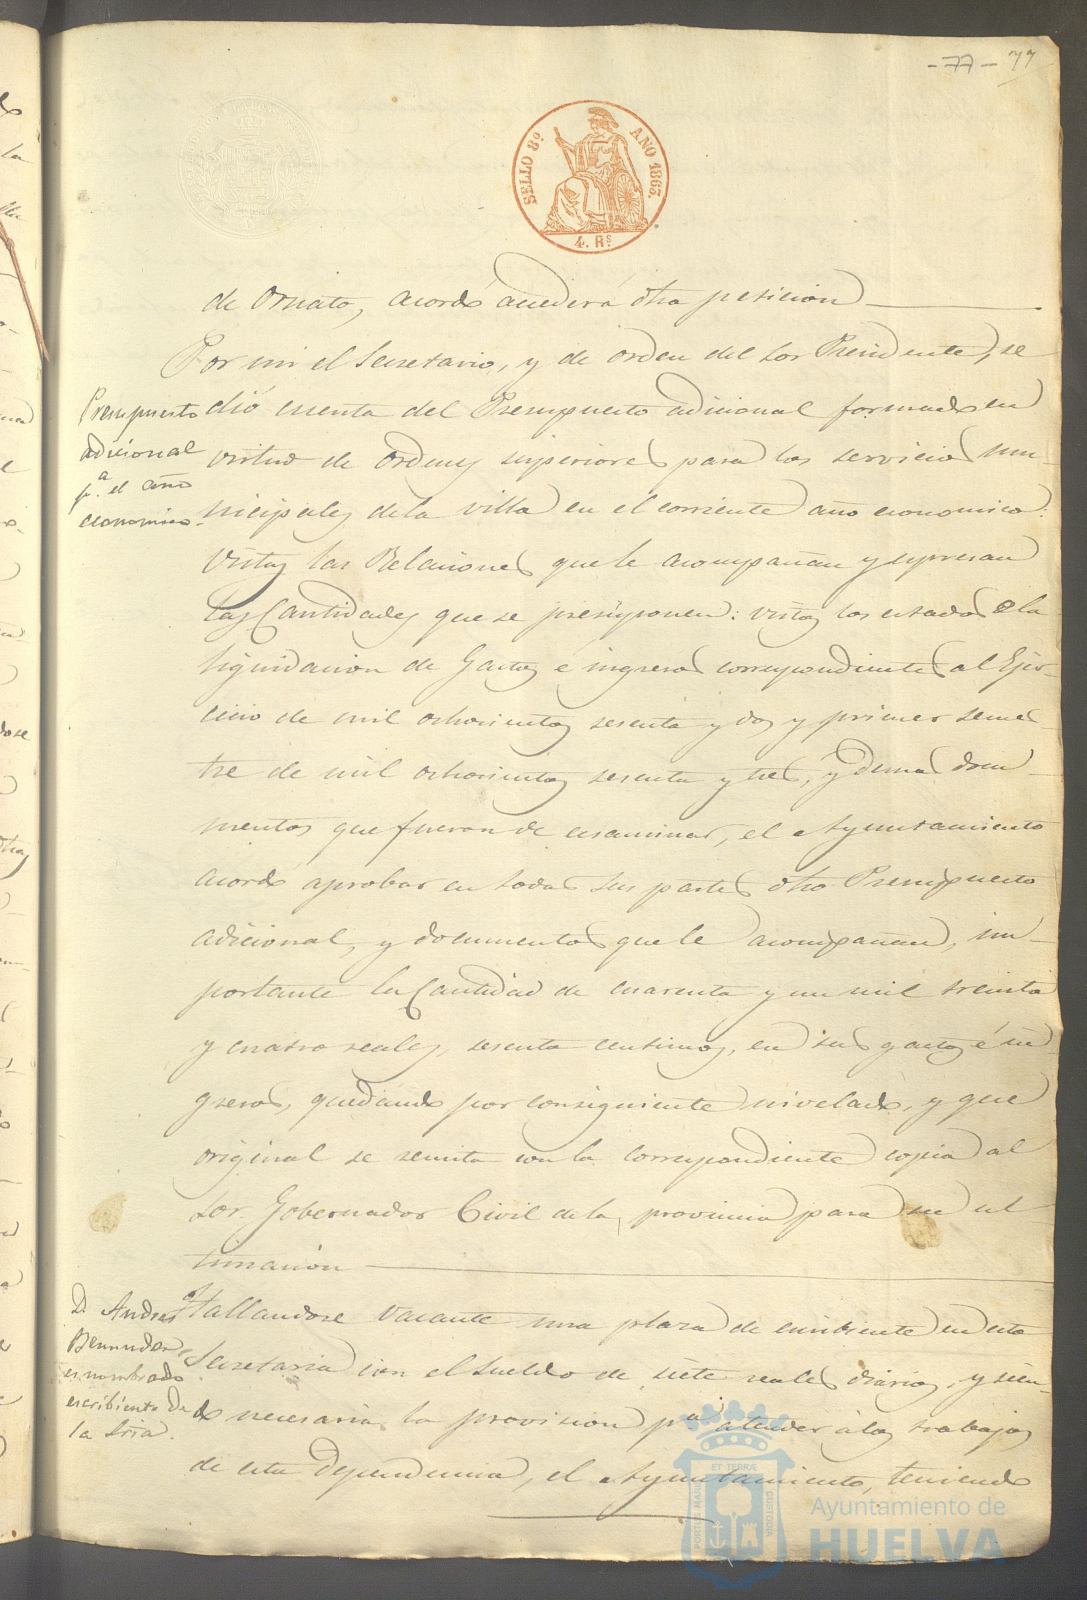 - 77 - 77
SELLO 8º AÑO 1863.
4. Rs
de Ornato, acordó acceder á dha peticion
Por mi el Secretario, y de orden del Sor Presidente, se
Presupuesto
adicional
pa. el año
economico.
dió cuenta del Presupuesto adicional formado en
virtud de ordenes superiores para los servicios mu-
nicipales de la villa en el corriente año economico:
vistas las Relaciones que le acompañan y espresan
las Cantidades que se presuponen: vistos los estados de la
liquidacion de Gastos é ingresos correspondientes al Ejer-
cicio de mil ochocientos sesenta y dos y primer semes
tre de mil ochocientos sesenta y tres, y demas docu-
mentos que fueron de ecsaminar, el Ayuntamiento
acordó aprobar en todas sus partes dho Presupuesto
adicional, y documentos que le acompañan, im-
portante la Cantidad de cuarenta y un mil treinta
y cuatro reales, sesenta centimos, en sus gastos é in-
gresos, quedando por consiguiente nivelado, y que
original se remita con la correspondiente copia al
Sor. Gobernador Civil de la provincia para su ul
timacion
D. Andres
Bermudez
es nombrado
escribiente de
la Sria.
Hallandose vacante una plaza de escribiente en esta
Secretaria con el sueldo de siete reales diarios, y sien-
do necesaria la provision pa. atender á los trabajos
de esta Dependencia, el Ayuntamiento, teniendo
PORTUS MARIS ET TERRÆ CUSTODIA
Ayuntamiento de
HUELVA